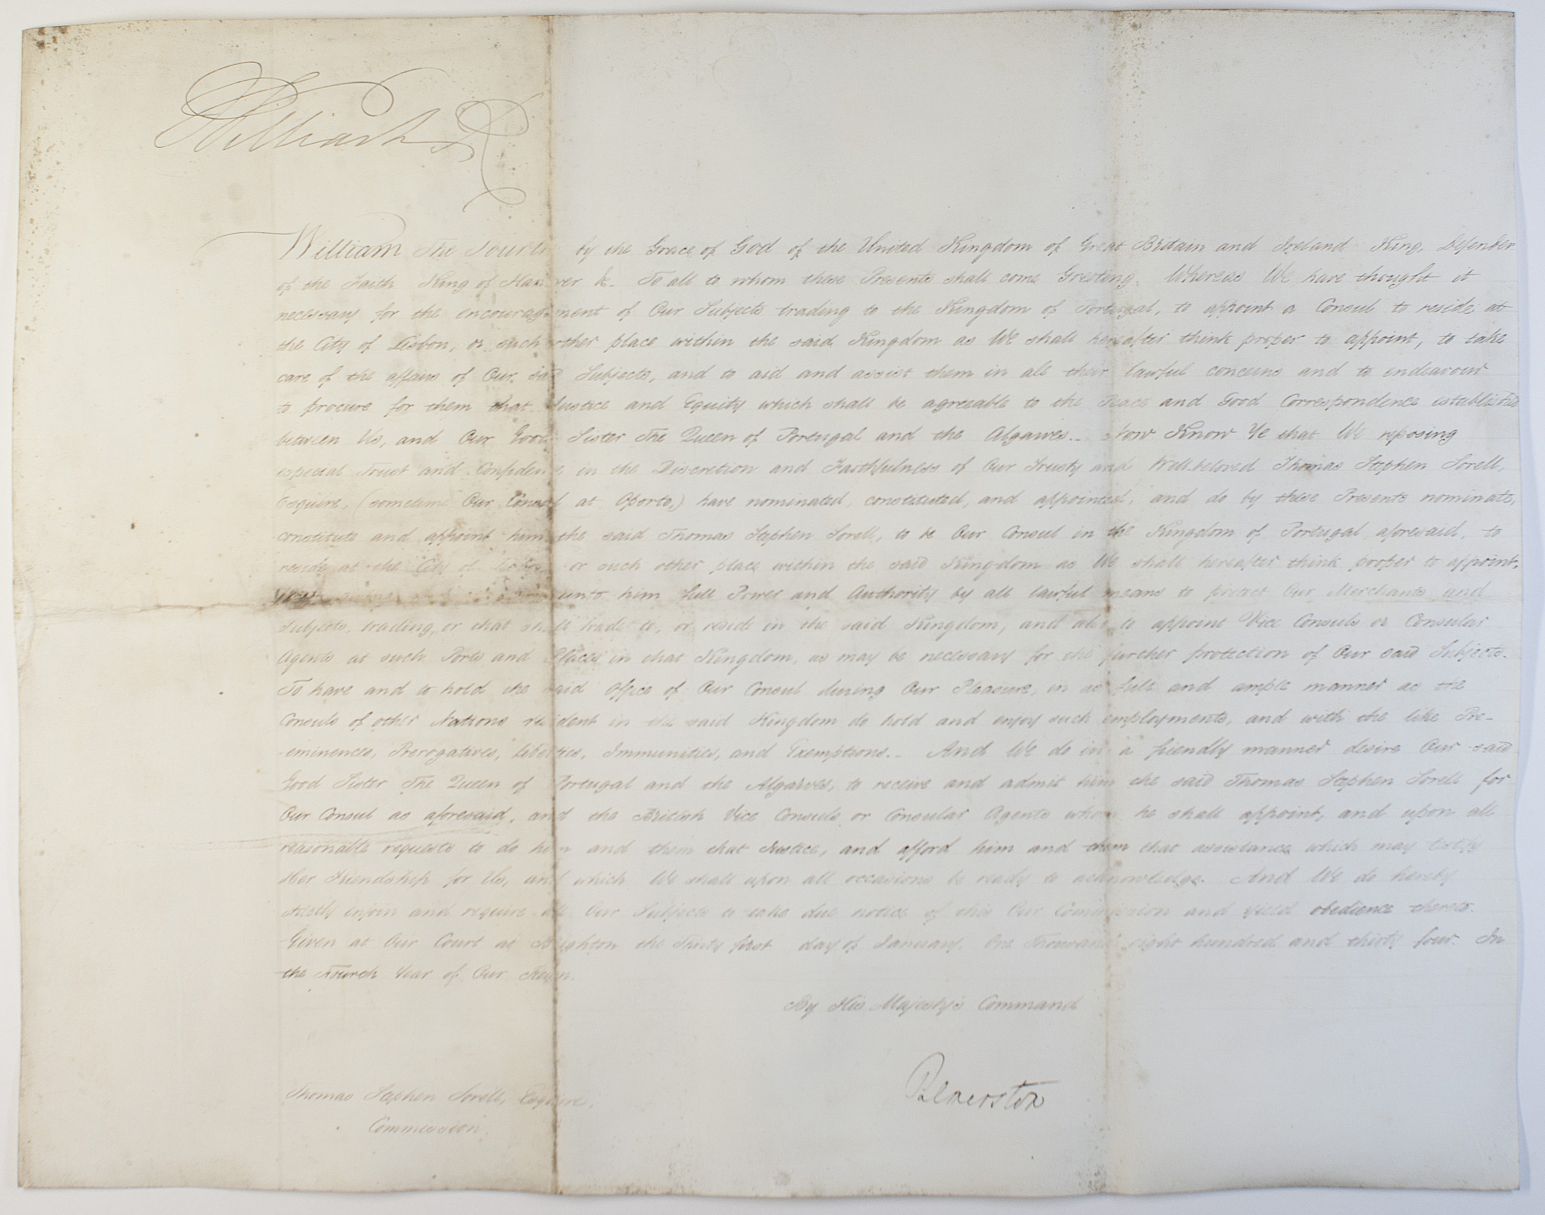 William R
William the Fourth by the Grace of God of the United Kingdom of Great Britain and Ireland King, Defender
of the Faith King of Hanover &c. To all to whom these Presents shall come Greeting. Whereas We have thought it
necessary for the encouragement of Our Subjects trading to the Kingdom of Portugal, to appoint a Consul to reside at
the City of Lisbon, or such other place within the said Kingdom as We shall hereafter think proper to appoint, to take
care of the affairs of Our said Subjects, and to aid and assist them in all their lawful concerns and to endeavour
to procure for them that Justice and Equity which shall be agreeable to the Peace and Good Correspondence established
between Us, and Our Good Sister The Queen of Portugal and the Algarves. Now Know Ye that We reposing
especial Trust and Confidence in the Discretion and Faithfulness of Our Trusty and Wellbeloved Thomas Stephen Sorell,
Esquire, (sometime Our Consul at Oporto,) have nominated, constituted, and appointed, and do by these Presents nominate,
constitute and appoint him the said Thomas Stephen Sorell, to be Our Consul in the Kingdom of Portugal aforesaid, to
reside at the City of Lisbon or such other place within the said Kingdom as We shall hereafter think proper to appoint,
unto him full Power and Authority by all lawful means to protect Our Merchants and
Subjects, trading, or that shall trade to, or reside in the said Kingdom, and also to appoint Vice Consuls or Consular
Agents at such Ports and Places in that Kingdom, as may be necessary for the further protection of Our said Subjects.
To have and to hold the said Office of Our Consul during Our Pleasure, in as full and ample manner as the
Consuls of other Nations resident in the said Kingdom do hold and enjoy such employments, and with the like Pre-
-eminences, Prerogatives, Liberties, Immunities, and Exemptions. And We do in a friendly manner desire Our said
Good Sister The Queen of Portugal and the Algarves, to receive and admit him the said Thomas Stephen Sorell for
Our Consul as aforesaid, and the British Vice Consuls or Consular Agents whom he shall appoint, and upon all
reasonable requests to do him and them that Justice, and afford him and them that assistance which may testify
Her Friendship for Us, and which We shall upon all occasions be ready to acknowledge. And We do hereby
strictly enjoin and require all Our Subjects to take due notice of this Our Commission and yield obedience thereto.
Given at Our Court at Brighton the Thirty first day of January, One Thousand eight hundred and thirty four. In
the Fourth Year of Our Reign.
By His Majesty's Command
Palmerston
Thomas Stephen Sorell, Esquire.
Commission.